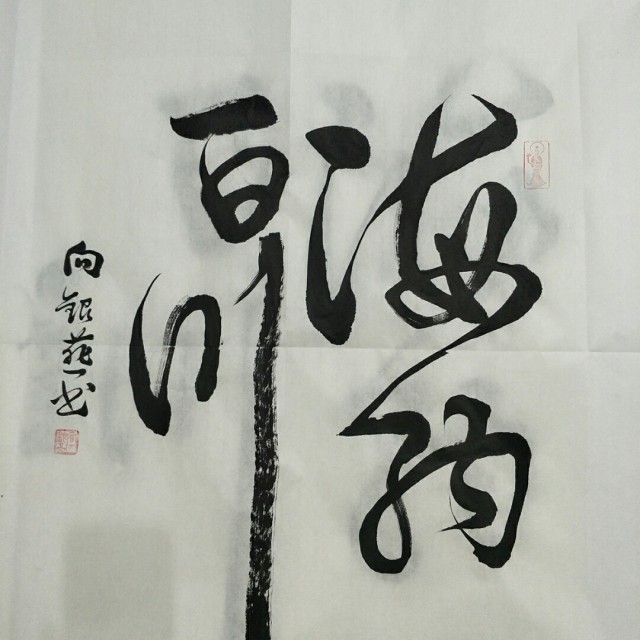 海纳
百川
向银燕书